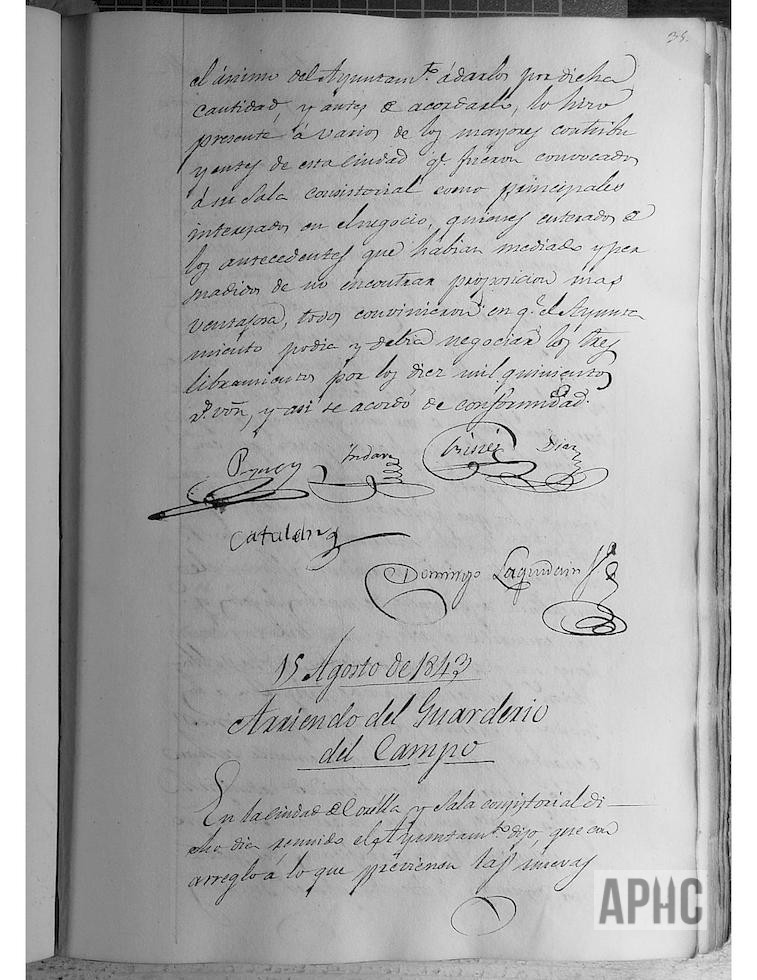 38.
el ánimo del Ayuntam.to á darlos por dicha
cantidad, y antes de acordarlo, lo hizo
presente á varios de los mayores contribu
yentes de esta Ciudad q.e fueron convocados
á su Sala Consistorial como principales
interesados en el negocio, quienes enterados de
los antecedentes que habian mediado y per
suadidos de no encontrar proposicion mas
ventajosa, todos convinieron en q.e el Ayunta
miento podia y debia negociar los tres
libramientos por los diez mil quinientos
r.s von, y asi se acordó de conformidad.
Díaz
Catalán
Domingo
15 Agosto de 1843
Arriendo del Guarderio
del Campo
En la Ciudad de Corella y Sala consistorial di-
cho dia reunido el Ayuntam.to dijo, que con
arreglo á lo que previenen las nuevas
APHC